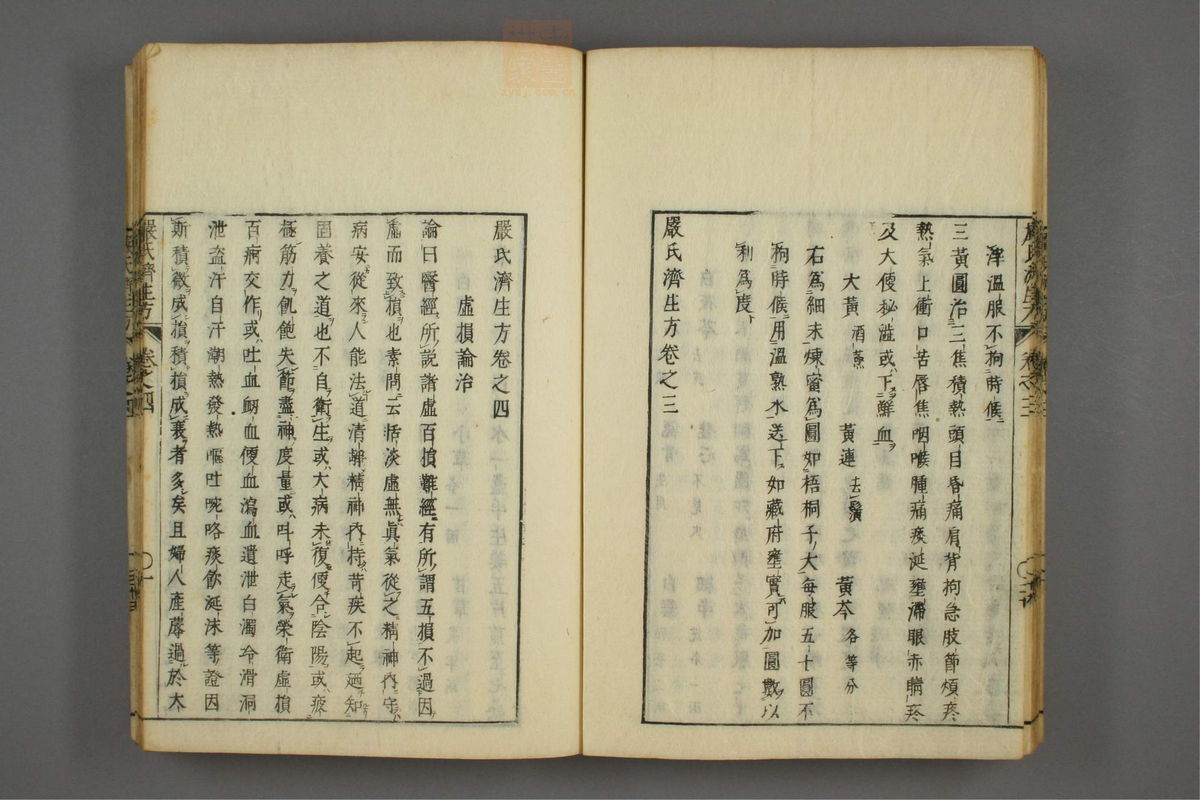 滓溫服不拘時候
三黃圓治三焦積熱頭目昏痛肩背拘急肢節煩疼
熱氣上衝口苦唇焦咽喉腫痛痰涎壅滯眼赤睛疼
及大便秘澁或下鮮血
大黃酒蒸 黃連去鬚 黃芩各等分
右為細末煉蜜為圓如梧桐子大每服五十圓不
拘時候用溫熟水送下如藏府壅實可加圓數以
利為度
嚴氏濟生方卷之三
嚴氏濟生方卷之四
虛損論治
論曰醫經所說諸虛百損難經有所謂五損不過因
虛而致損也素問云恬淡虛無真氣從之精神內守
病安從來人能法道清靜精神內持苛疾不起廼知
固養之道也不自衛生或大病未復便合陰陽或疲
極筋力飢飽失節盡神度量或呌呼走氣榮衛虛損
百病交作或吐血衂血便血瀉血遺泄白濁冷滑洞
泄盜汗自汗潮熱發熱嘔吐咳咯痰飲涎沫等證因
斯積微成損積損成衰者多矣且婦人產蓐過於大
嚴氏濟生方 卷之四